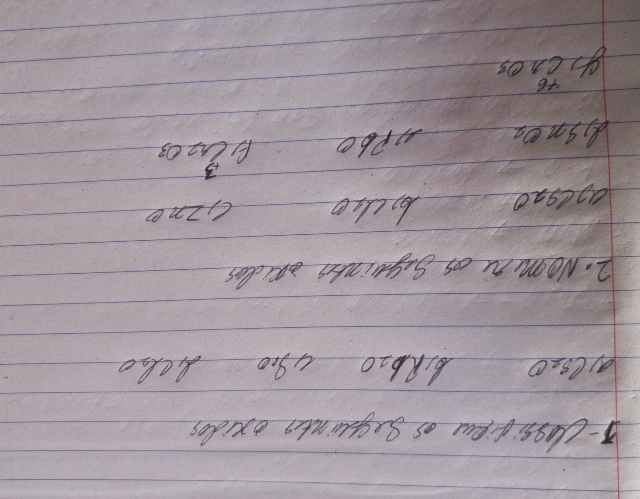 1- Classifique os Seguintes oxidos
a) Cs2O b) Rb2O c) SrO d) Cl2O
2. Nomeie os Seguintes oxidos
a) Cs2O b) Cl2O c) ZnO
d) SnO2 e) PbO f) Cr2O3
+3
g) CrO3
+6